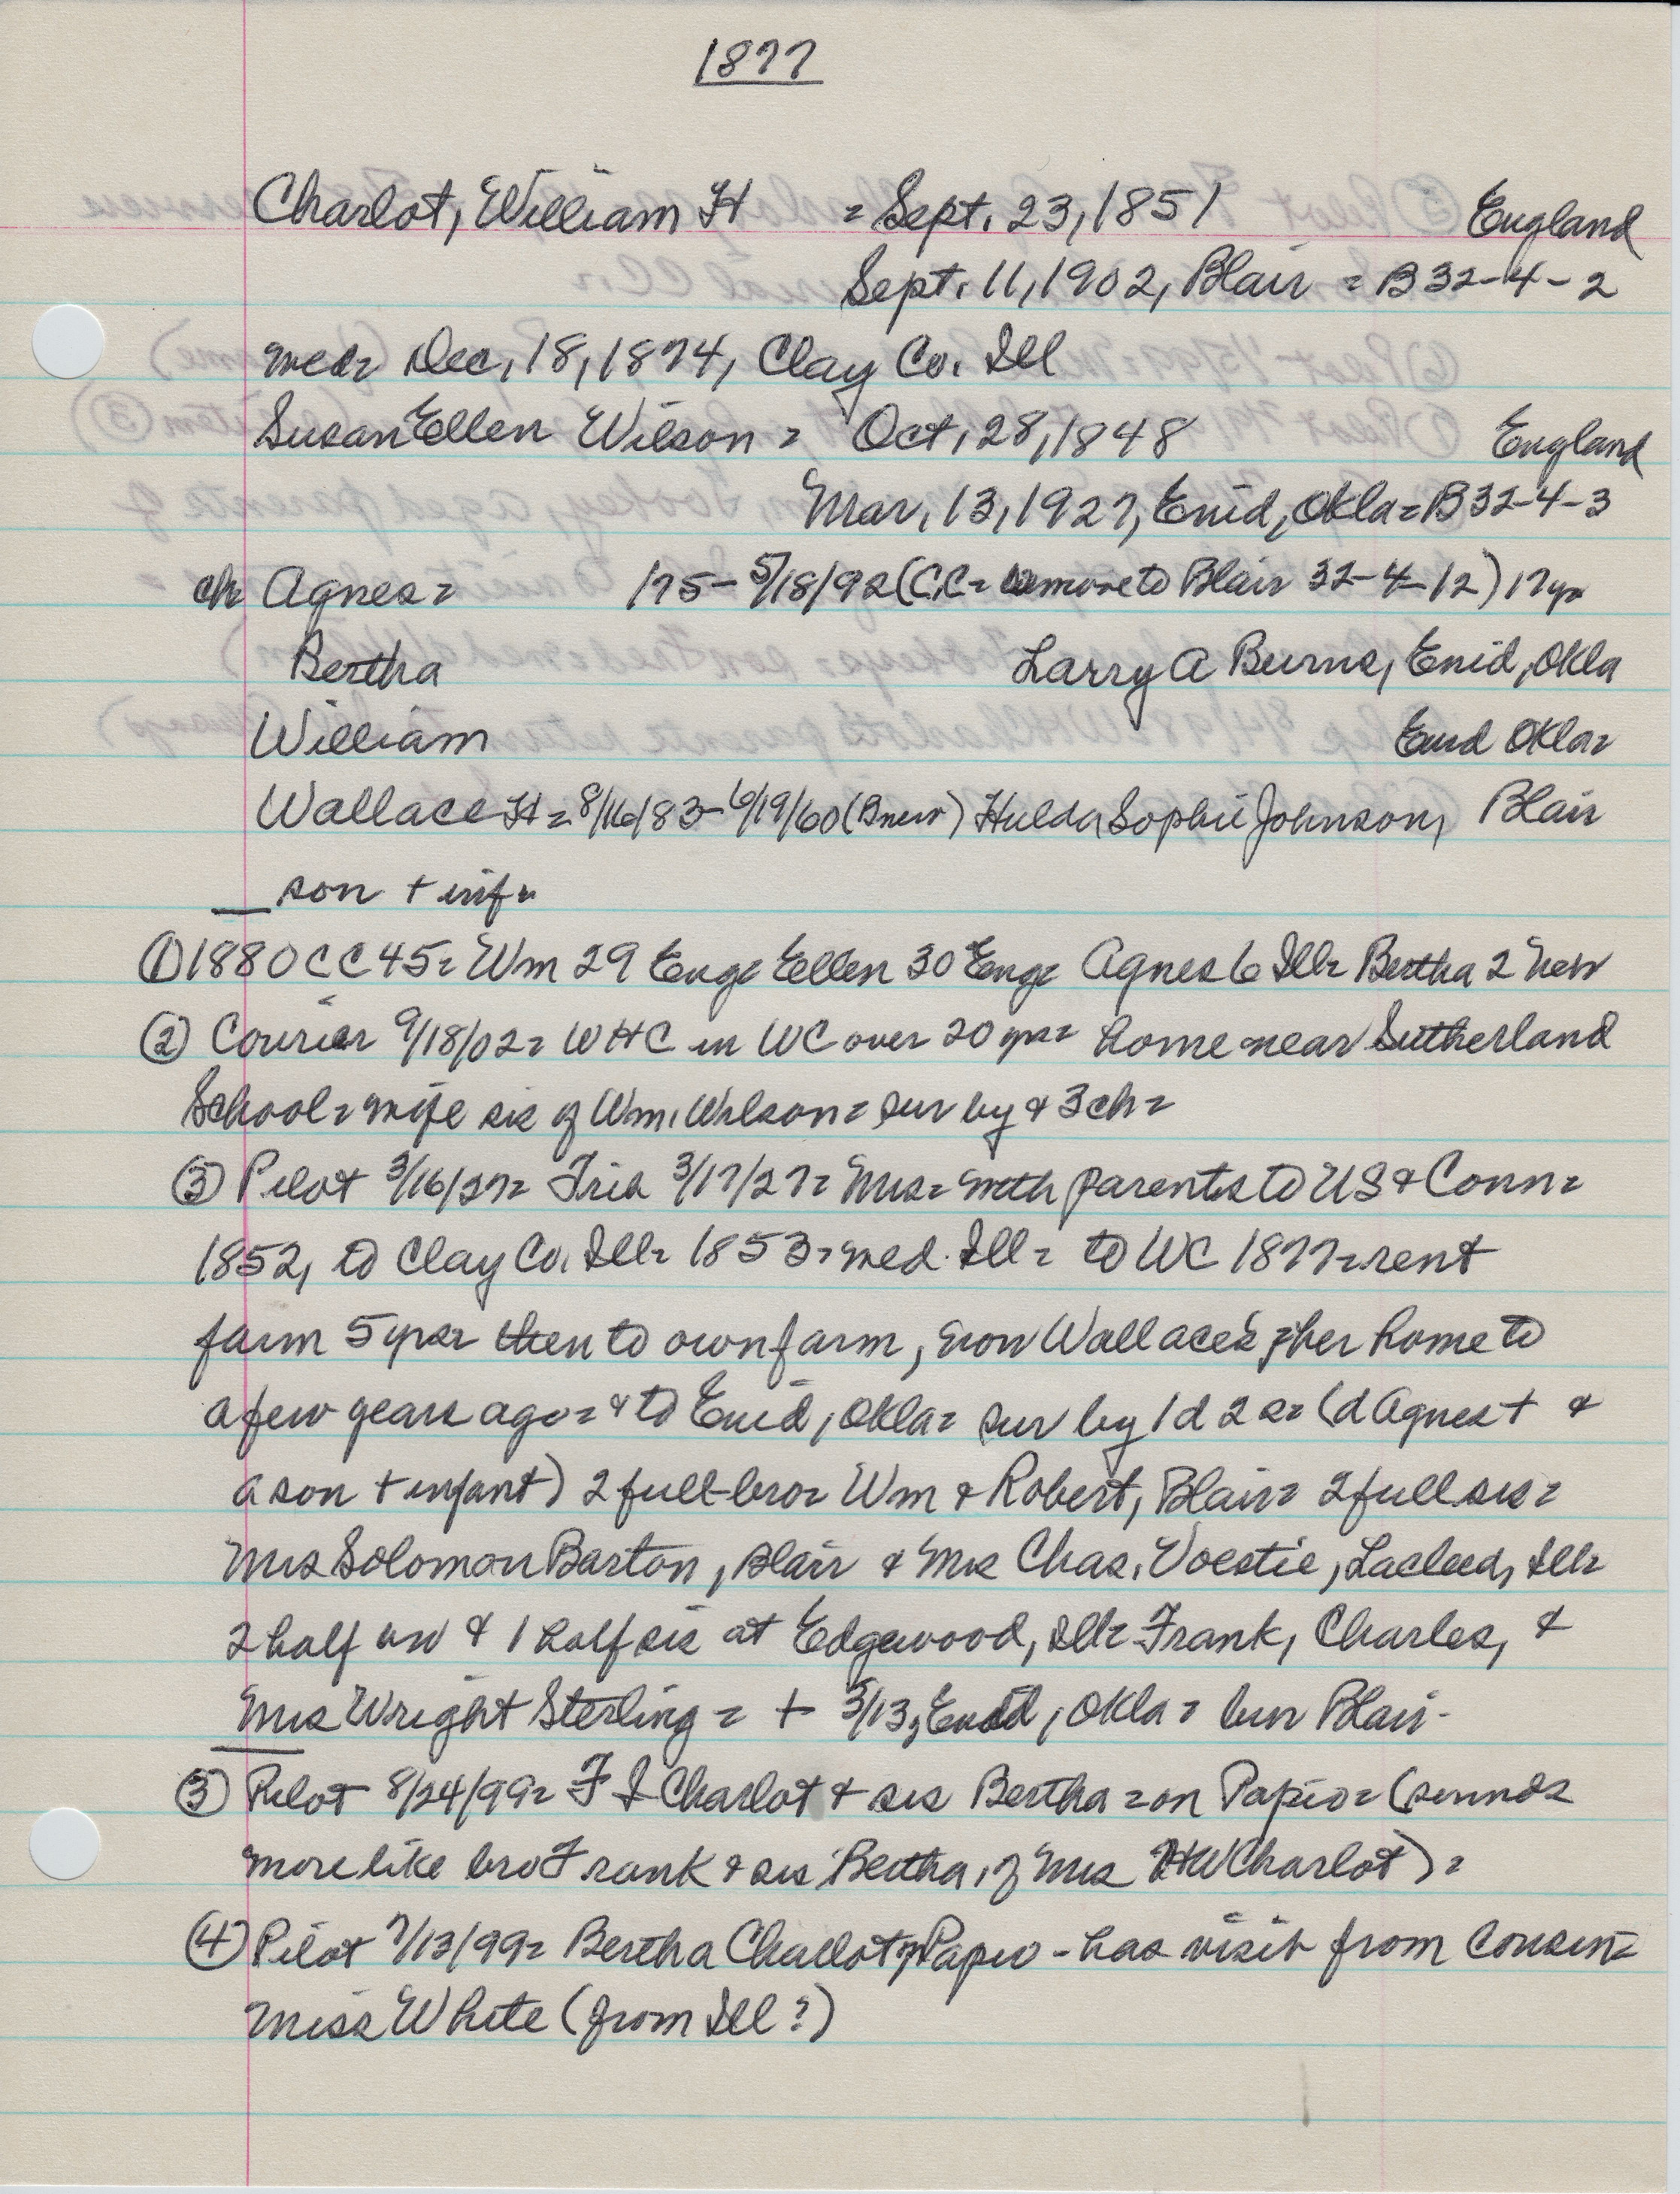 1877
Charlot, William H = Sept. 23, 1851 England
Sept. 11, 1902, Blair = B 32-4-2
med= Dec, 18, 1874, Clay Co. Ill
Susan Ellen Wilson = Oct, 28, 1848 England
Mar, 13, 1927, Enid, Okla = B 32-4-3
ch Agnes = /75 - 5/18/92 (CC= remove to Blair 32-4-12) 17 yr
Bertha Larry A Burns, Enid, Okla
William Enid Okla=
Wallace H = 8/16/83 - 6/19/60 (Bnew) Hulda Sophie Johnson, Blair
__ son + inf=
① 1880 CC 45= Wm 29 Eng= Ellen 30 Eng= Agnes 6 Ill= Bertha 2 Neb
② Courier 9/18/02= WHC in WC over 20 yrs= home near Sutherland
School= wife sis of Wm. Wilson= sur by & 3 ch=
③ Pilot 3/16/27= Trib 3/17/27= Mrs= with parents to US & Conn=
1852, to Clay Co. Ill= 1853= med. Ill= to WC 1877= rent
farm 5 yrs= then to own farm, now Wallace's = her home to
a few years ago= & to Enid, Okla= sur by 1 d 2 s= (d Agnes + &
a son + infant) 2 full bro= Wm & Robert, Blair= 2 full sis=
Mrs Solomon Barton, Blair & Mrs Chas. Voestie, Lacleed, Ill=
2 half bro & 1 half sis at Edgewood, Ill= Frank, Charles, &
Mrs Wright Sterling = + 3/13, Enid, Okla = bur Blair-
③ Pilot 8/24/99= F I Charlot & sis Bertha = on Papio= (sounds
more like bro Frank & sis Bertha, of Mrs HW Charlot) =
④ Pilot 7/13/99= Bertha Charlot Papio - has visit from cousin=
Miss White (from Ill ?)